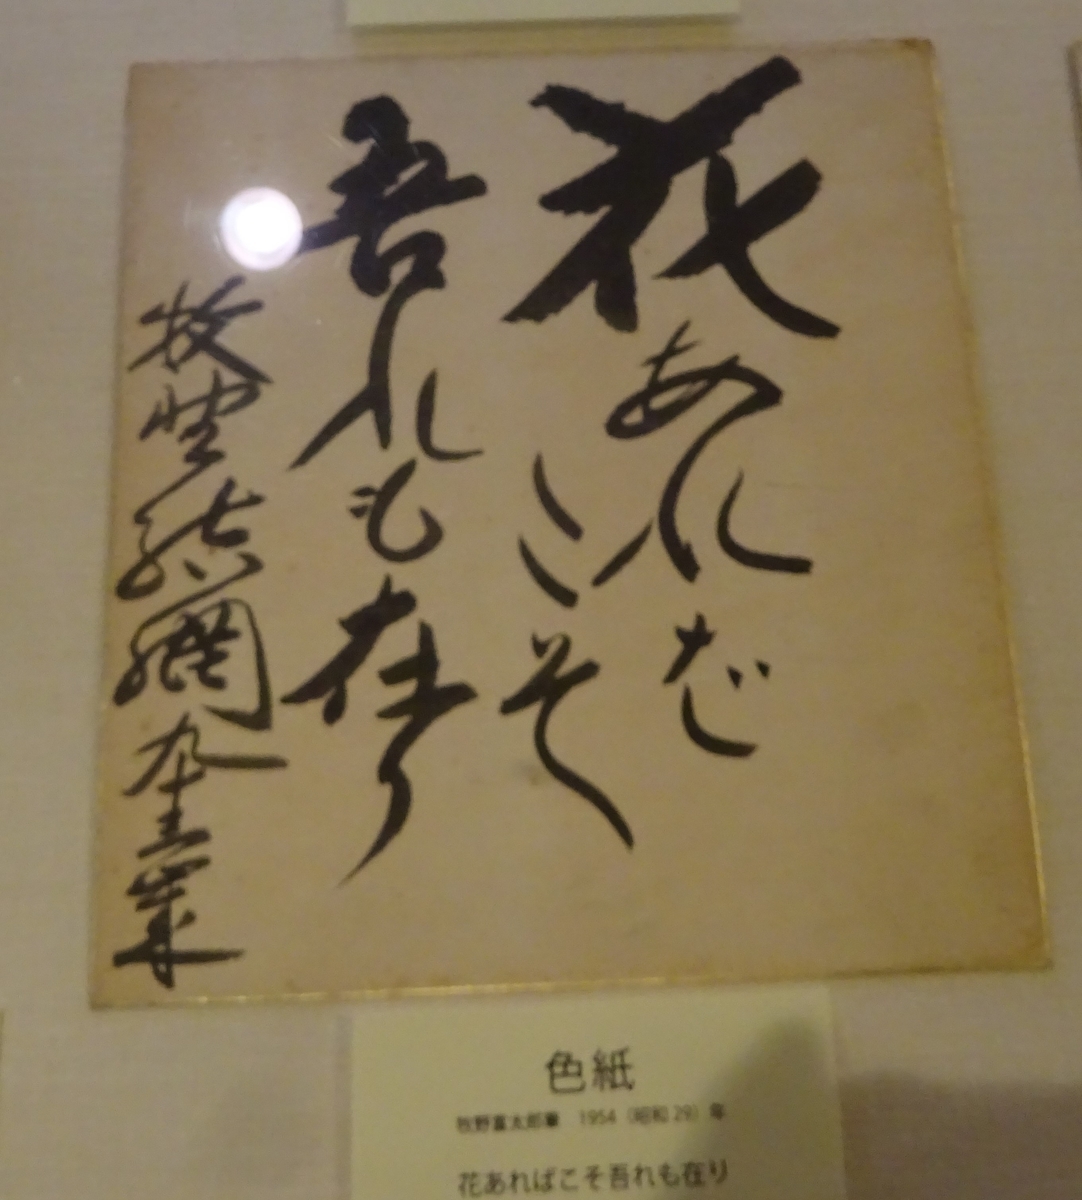 花あれば
こそ
吾れも在り
牧野結網九十三
色紙
牧野富太郎筆　1954（昭和29）年
花あればこそ吾れも在り